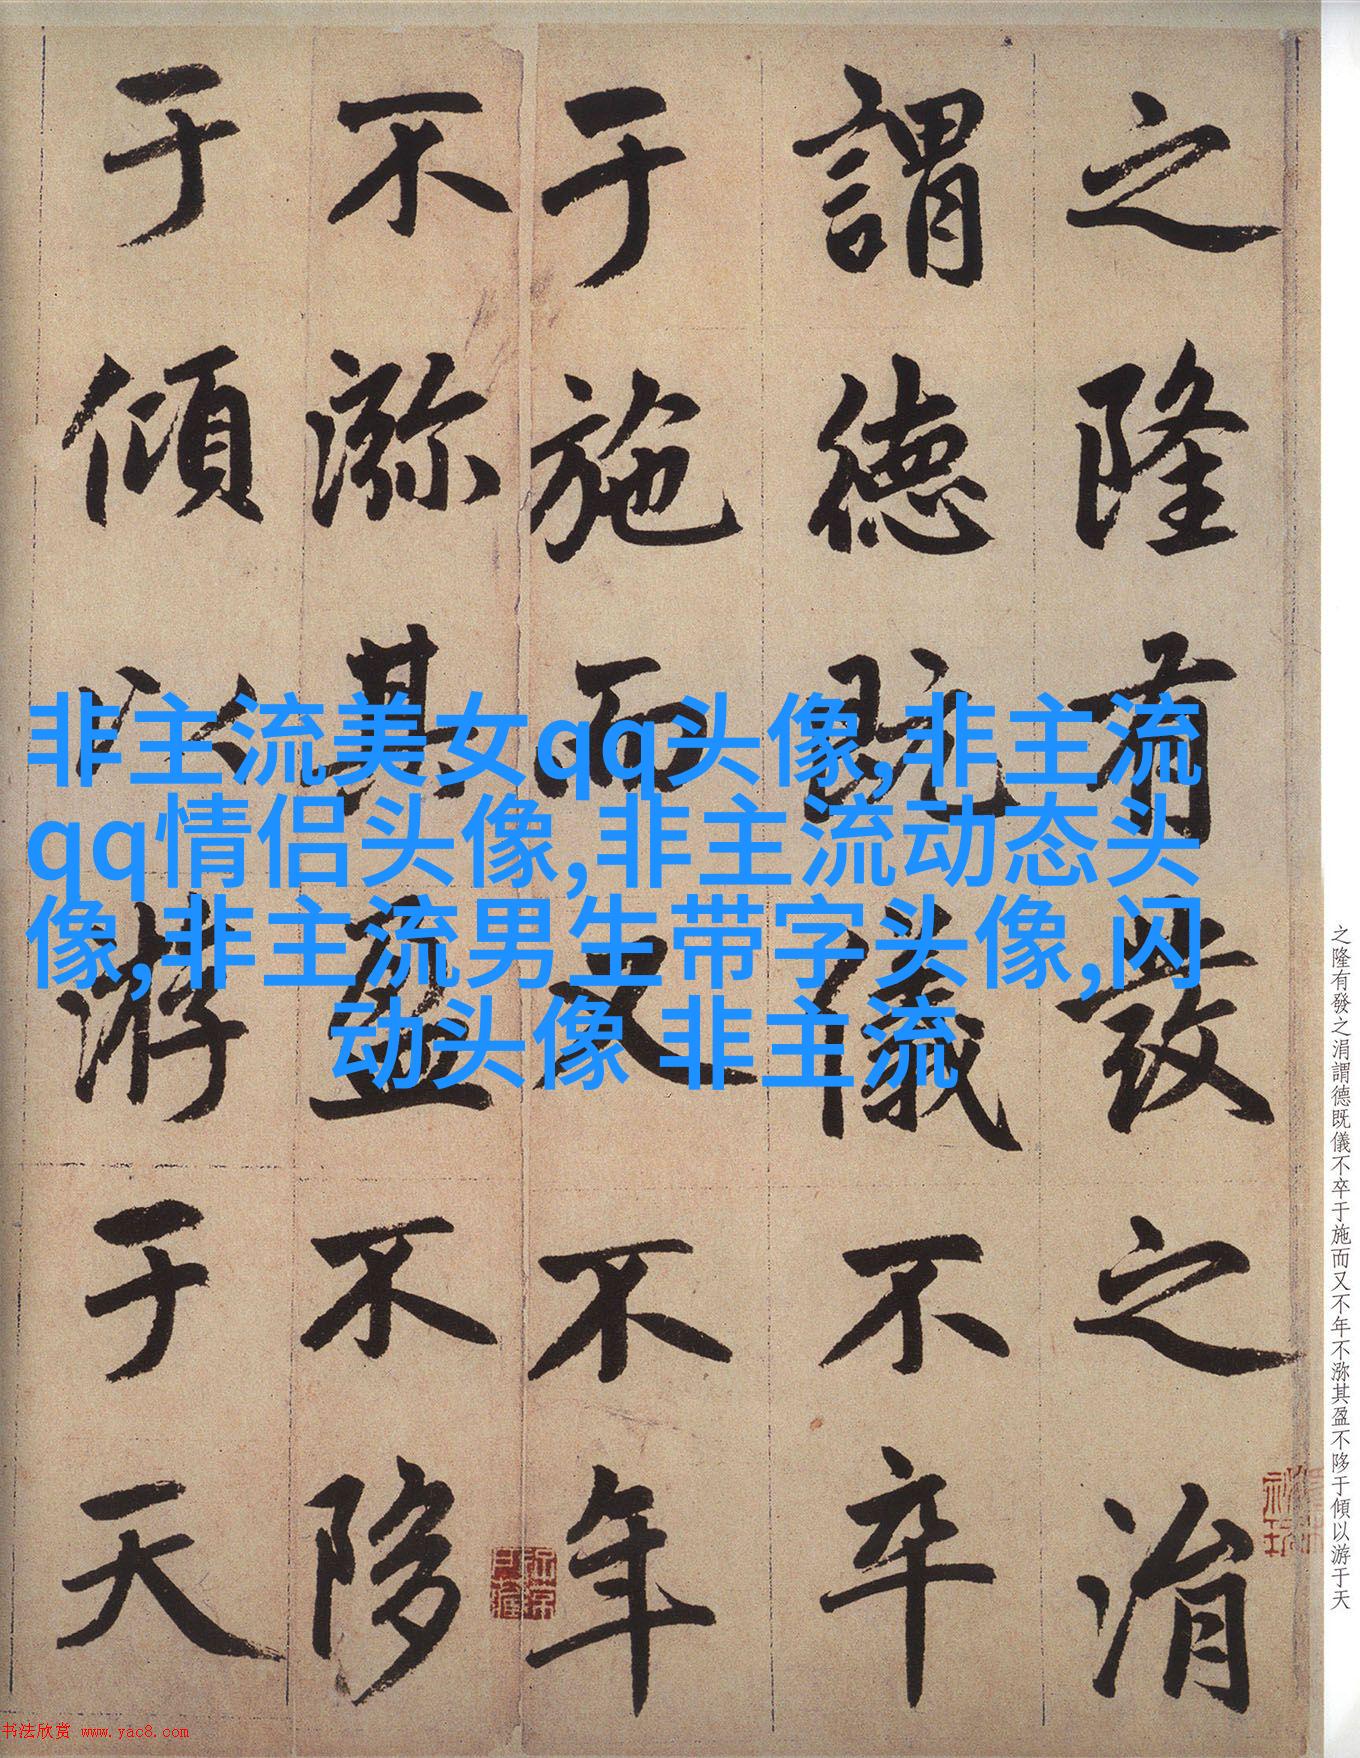 之隆有發之涓
謂德既儀不卒
于施而又不年
不㳽其盈不陊
于傾以游于天
非主流美女qq头像,非主流
qq情侣头像,非主流动态头
像,非主流男生带字头像,闪
动头像 非主流
之隆有發之涓謂德既儀不卒于施而又不年不㳽其盈不陊于傾以游于天
书法欣赏 www.yac8.com